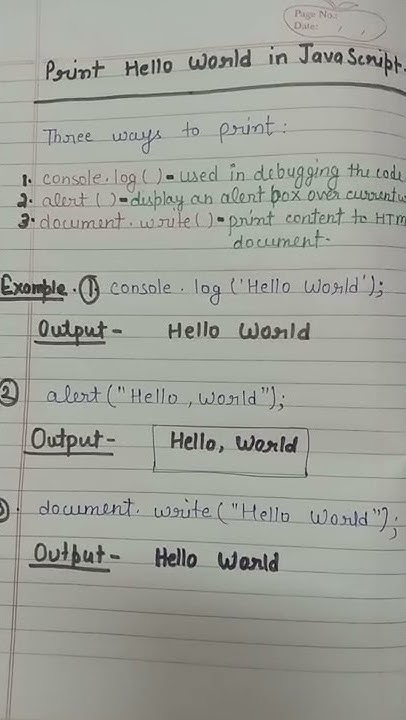 Page No.:
Date: / /
Print Hello World in JavaScript.
Three ways to print:
1. console.log( ) = used in debugging the code
2. alert ( ) = display an alert box over current w
3. document.write( ) = print content to HTM
document.
Example. ① console.log ('Hello World');
Output - Hello World
② alert ("Hello, World");
Output - Hello, World
document. write ("Hello World");
Output - Hello World